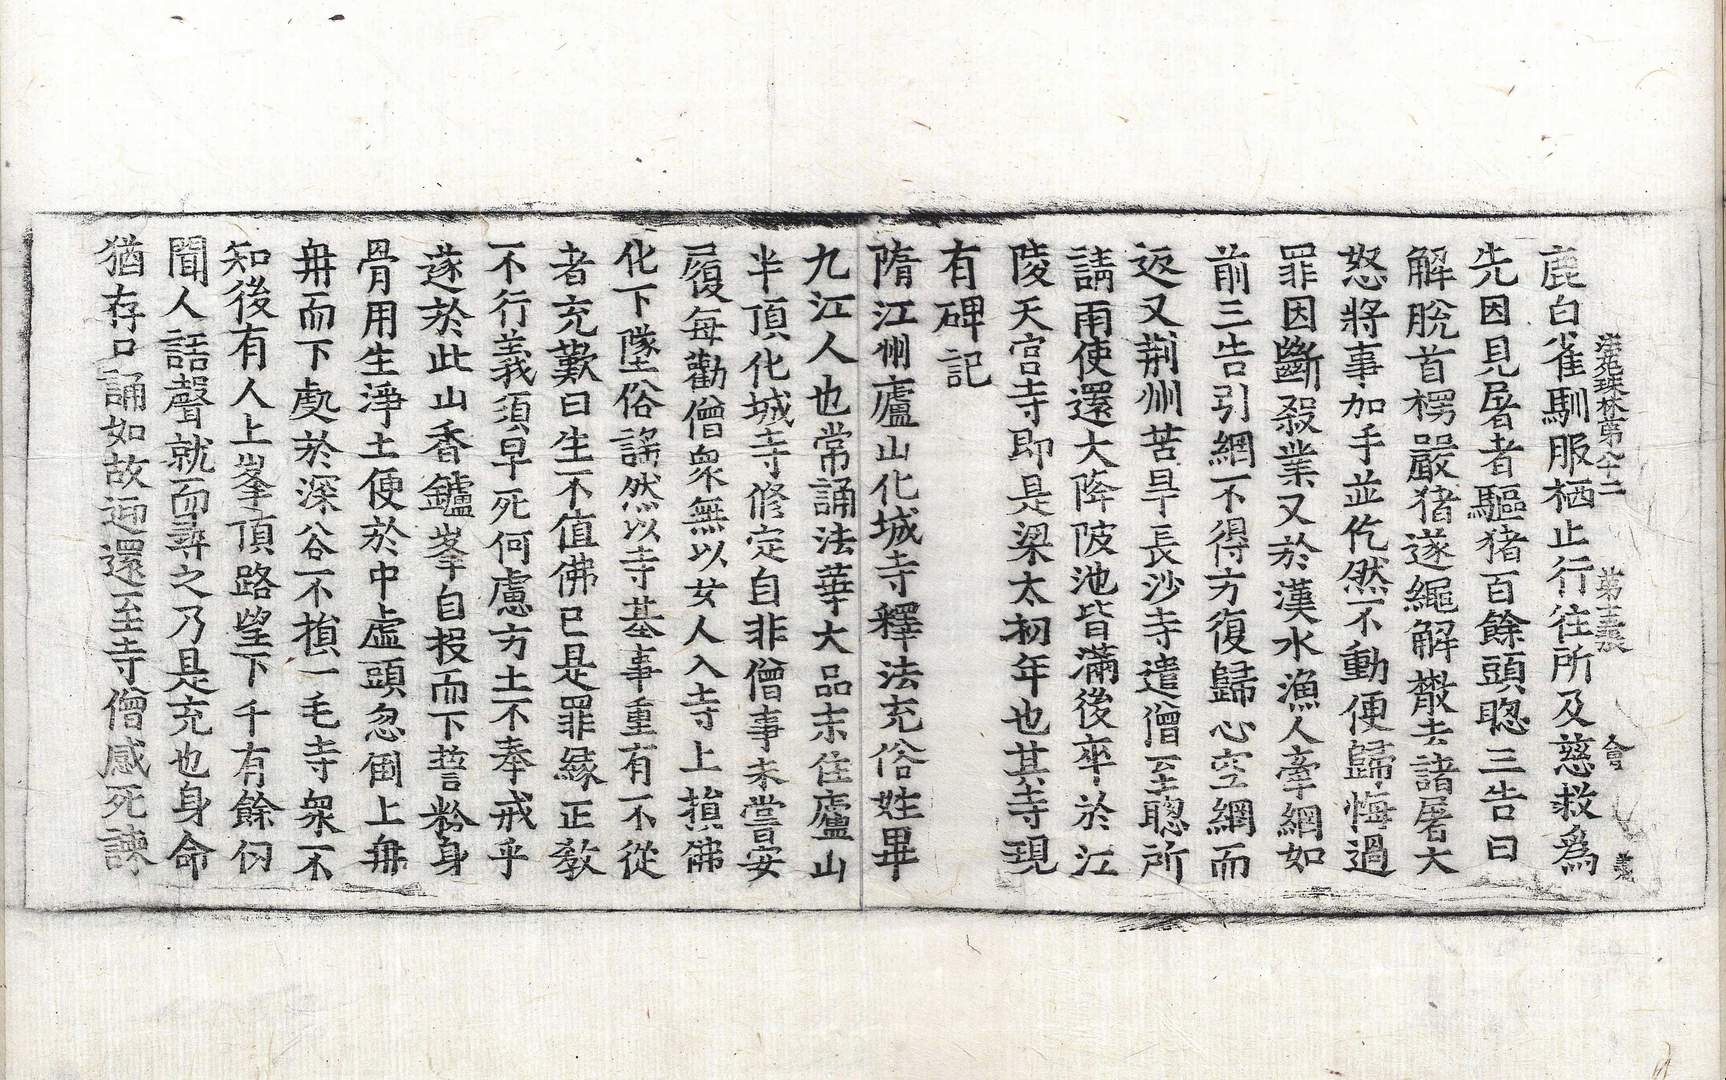 法苑珠林第八十二　會
鹿白雀馴服栖止行往所及慈救爲
先因見屠者驅猪百餘頭聦三告曰
解脫首楞嚴猪遂繩解散去諸屠大
怒將事加手並仡然不動便歸悔過
罪因斷殺業又於漢水漁人牽網如
前三告引網不得方復歸心空網而
返又荆州苦旱長沙寺遣僧至聦所
請雨使還大降陂池皆滿後卒於江
陵天宮寺即是梁太初年也其寺現
有碑記
隋江州廬山化城寺釋法充俗姓畢
九江人也常誦法華大品末住廬山
半頂化城寺修定自非僧事未嘗安
履每勸僧衆無以女人入寺上損佛
化下墜俗謠然以寺基事重有不從
者充歎曰生不值佛已是罪緣正教
不行義須早死何慮方土不奉戒乎
遂於此山香鑪峯自投而下誓粉身
骨用生淨土便於中虛頭忽倒上冉
冉而下處於深谷不損一毛寺衆不
知後有人上峯頂路望下千有餘仞
聞人語聲就而尋之乃是充也身命
猶存口誦如故迎還至寺僧感死諫